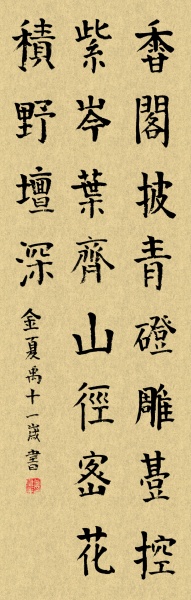 香閣披青磴雕臺控
紫岑葉齊山徑密花
積野壇深
金夏禹十一歲書